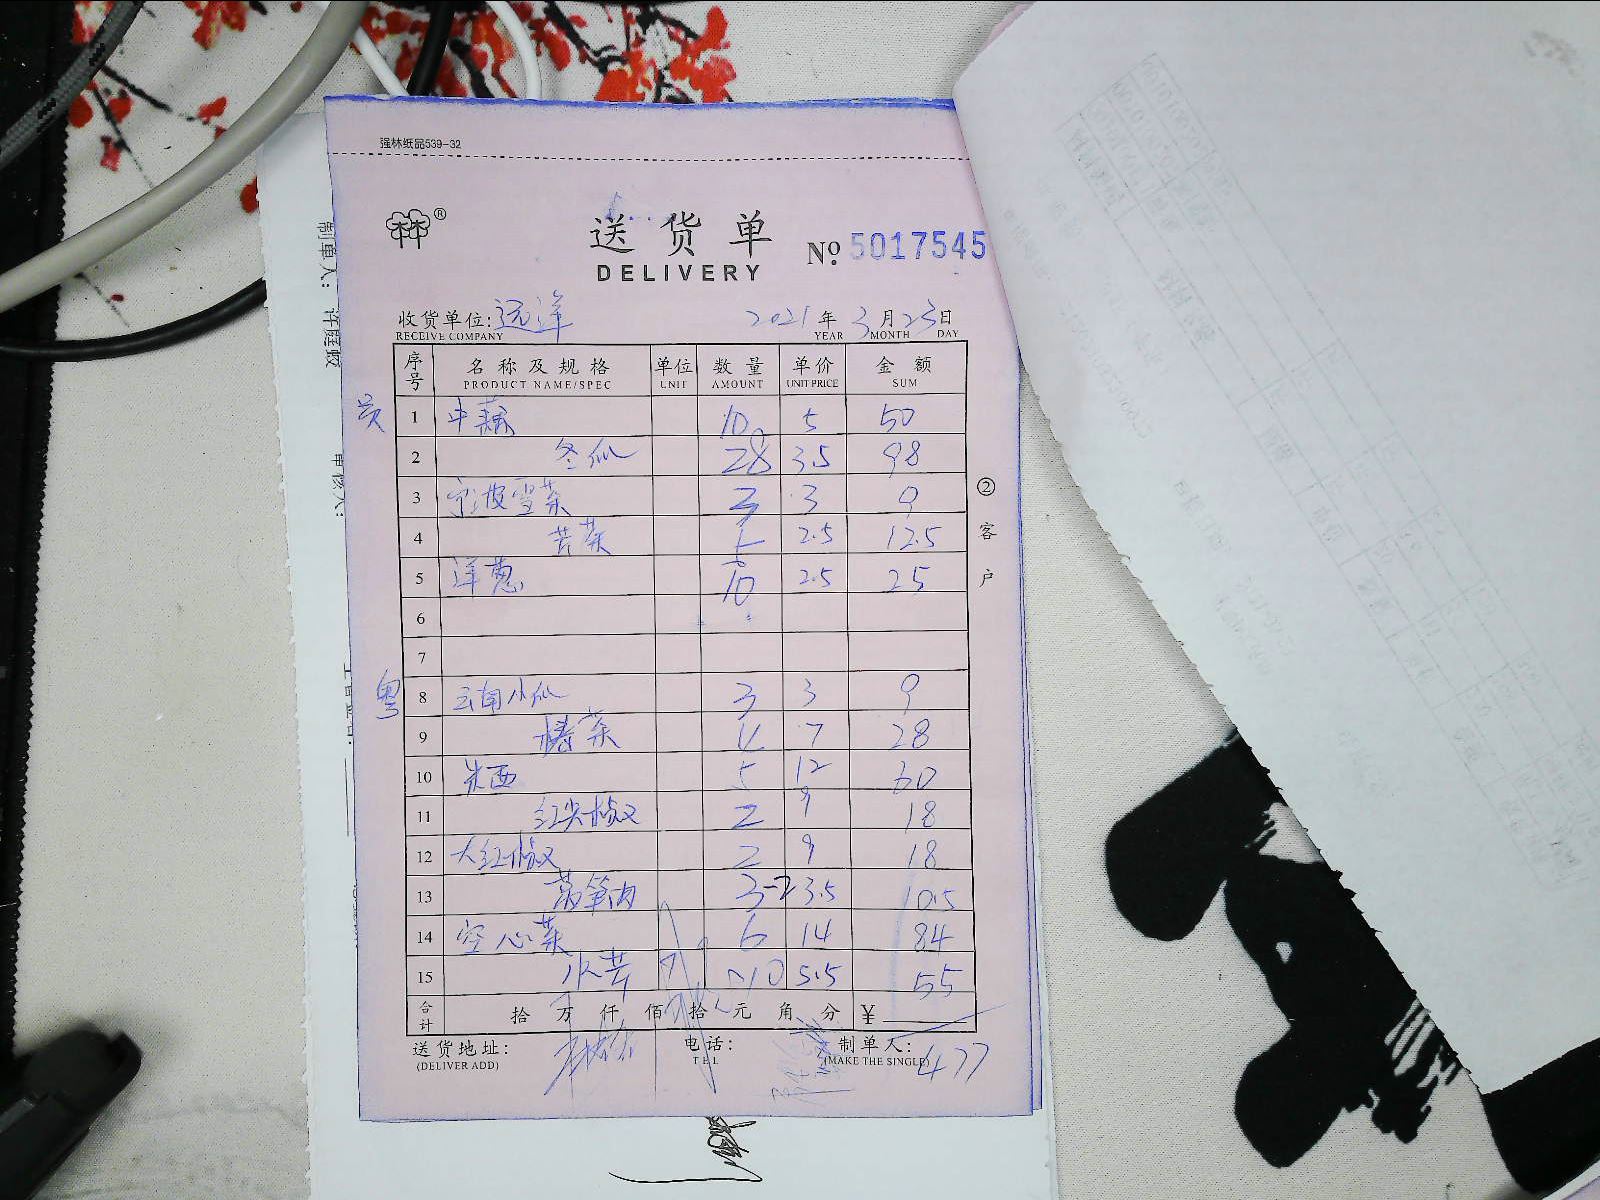 强林纸品539-32
林林®
送货单
DELIVERY
No. 5017545
收货单位: 远洋 2021年3月23日
RECEIVE COMPANY YEAR MONTH DAY
序号 名称及规格 单位 数量 单价 金额
PRODUCT NAME/SPEC UNIT AMOUNT UNIT PRICE SUM
员 1 中藕 10 5 50
2 冬仙 28 3.5 98
3 宁波雪菜 3 3 9
4 苦菜 5 2.5 12.5
5 洋葱 10 2.5 25
6
7
粤 8 云南小仙 3 3 9
9 椿菜 4 7 28
10 米西 5 12 60
11 红尖椒 2 9 18
12 大红椒 2 9 18
13 莴笋肉 3 3.5 10.5
14 空心菜 6 14 84
15 水芹 10 5.5 55
合计 拾万仟佰拾元角分 ¥
送货地址: 电话: 制单人:
(DELIVER ADD) TEL (MAKE THE SINGLE) 477
②客户
制单人: 许庭
审核人: